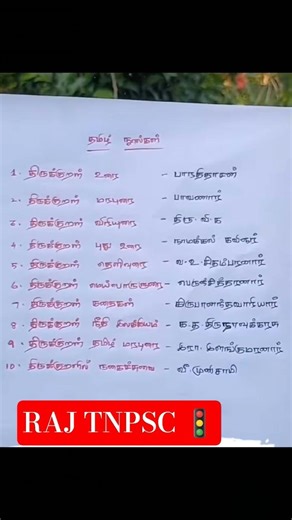 தமிழ் நூல்கள்
1. திருக்குறள் உரை - பாரதிதாசன்
2. திருக்குறள் மரபுரை - பாவணார்
3. திருக்குறள் விரிவுரை - திரு. வி. க
4. திருக்குறள் புது உரை - நாமக்கல் கவிஞர்
5. திருக்குறள் தெளிவுரை - வ. உ சிதம்பரனார்
6. திருக்குறள் மெய்ப்பொருளுரை - பெருஞ்சித்தரனார்
7. திருக்குறள் கதைகள் - கிருபானந்தவாரியார்
8. திருக்குறள் நீதி இலக்கியம் - க. த திருநாவுக்கரசு
9. திருக்குறள் தமிழ் மரபுரை - இரா. இளங்குமரனார்
10. திருக்குறளில் நகைச்சுவை - வீ. முனிசாமி
RAJ TNPSC